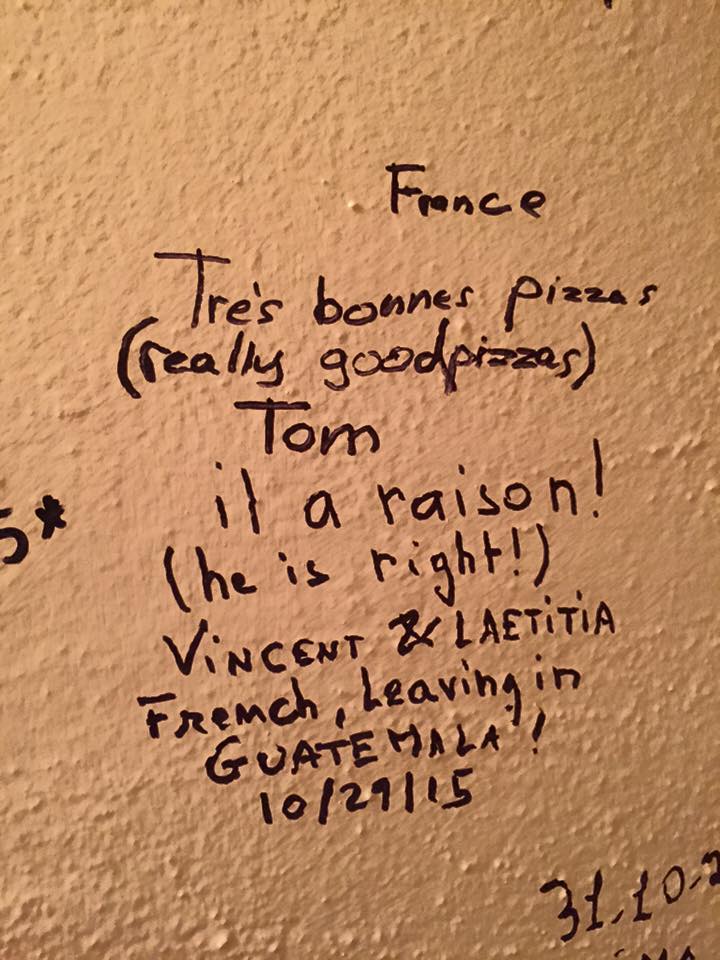 France
Tre's bonnes pizzas
(really good pizzas)
Tom
il a raison!
(he is right!)
5*
VINCENT & LAETITIA
French, Leaving in
GUATEMALA !
10/29/15
31.10.2